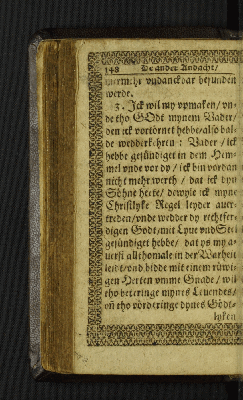 148 De ander Andacht/
nicrmehr vndanckbar befunden
werde.
3. Ick wil my vpmaken/ vn-
de tho GOdt mynem Vader/
den ick vortörnet hebbe/ also bal-
de wedderkehren: Vader / ick
hebbe gesündiget in dem Hem-
mel vnde vor dy / ick bin vordan
nicht mehr werth / dat ick dyn
Söhne heete / dewyle ick myne
Christlyke Regel leyder auer-
treden/ vnde wedder dy rechtfer-
digen Godt/ mit Lyue vnd Seel
gesündiget hebbe/ dat ys my a-
uerst allthomale in der Warheit
leidt/ vnd bidde mit einem rüwi-
gen Herten vmme Gnade/ wil
tho beteringe mynes Leuendes/
vñ tho vörderinge dynes Gödt-
lyken